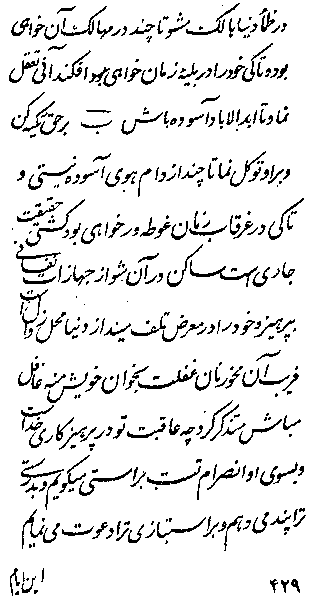 در ظلّ دنیا بالک مشو تا چند در مهالک آن خواهی
بود تا کی خود را در بلیهٔ زمان خواهی بهوا فکند آنی تعقل
نما و تا ابد الاباد آسوده باش ب بر حق تکیه کن
و براو توکل نما تا چند از دام هوی آسوده نیستی و
تا کی در غرقاب زمان غوطه ور خواهی بود کشتی حقیقت
جاری است ساکن در آن شو از جهازات نفسانی
بپرهیز و خود را در معرض تلف مینداز دنیا محل زوال است
فریب آن مخور نان غفلت بخوان خویش منه غافل
مباش متذکر گرد چه عاقبت تو در پرهیزکاری خداست
و بسوی او انصرام تست براستی میگویم و بدرستی
ترا پند می دهم و براستبازی ترا دعوت می نمایم
۴۲۹ این ایام